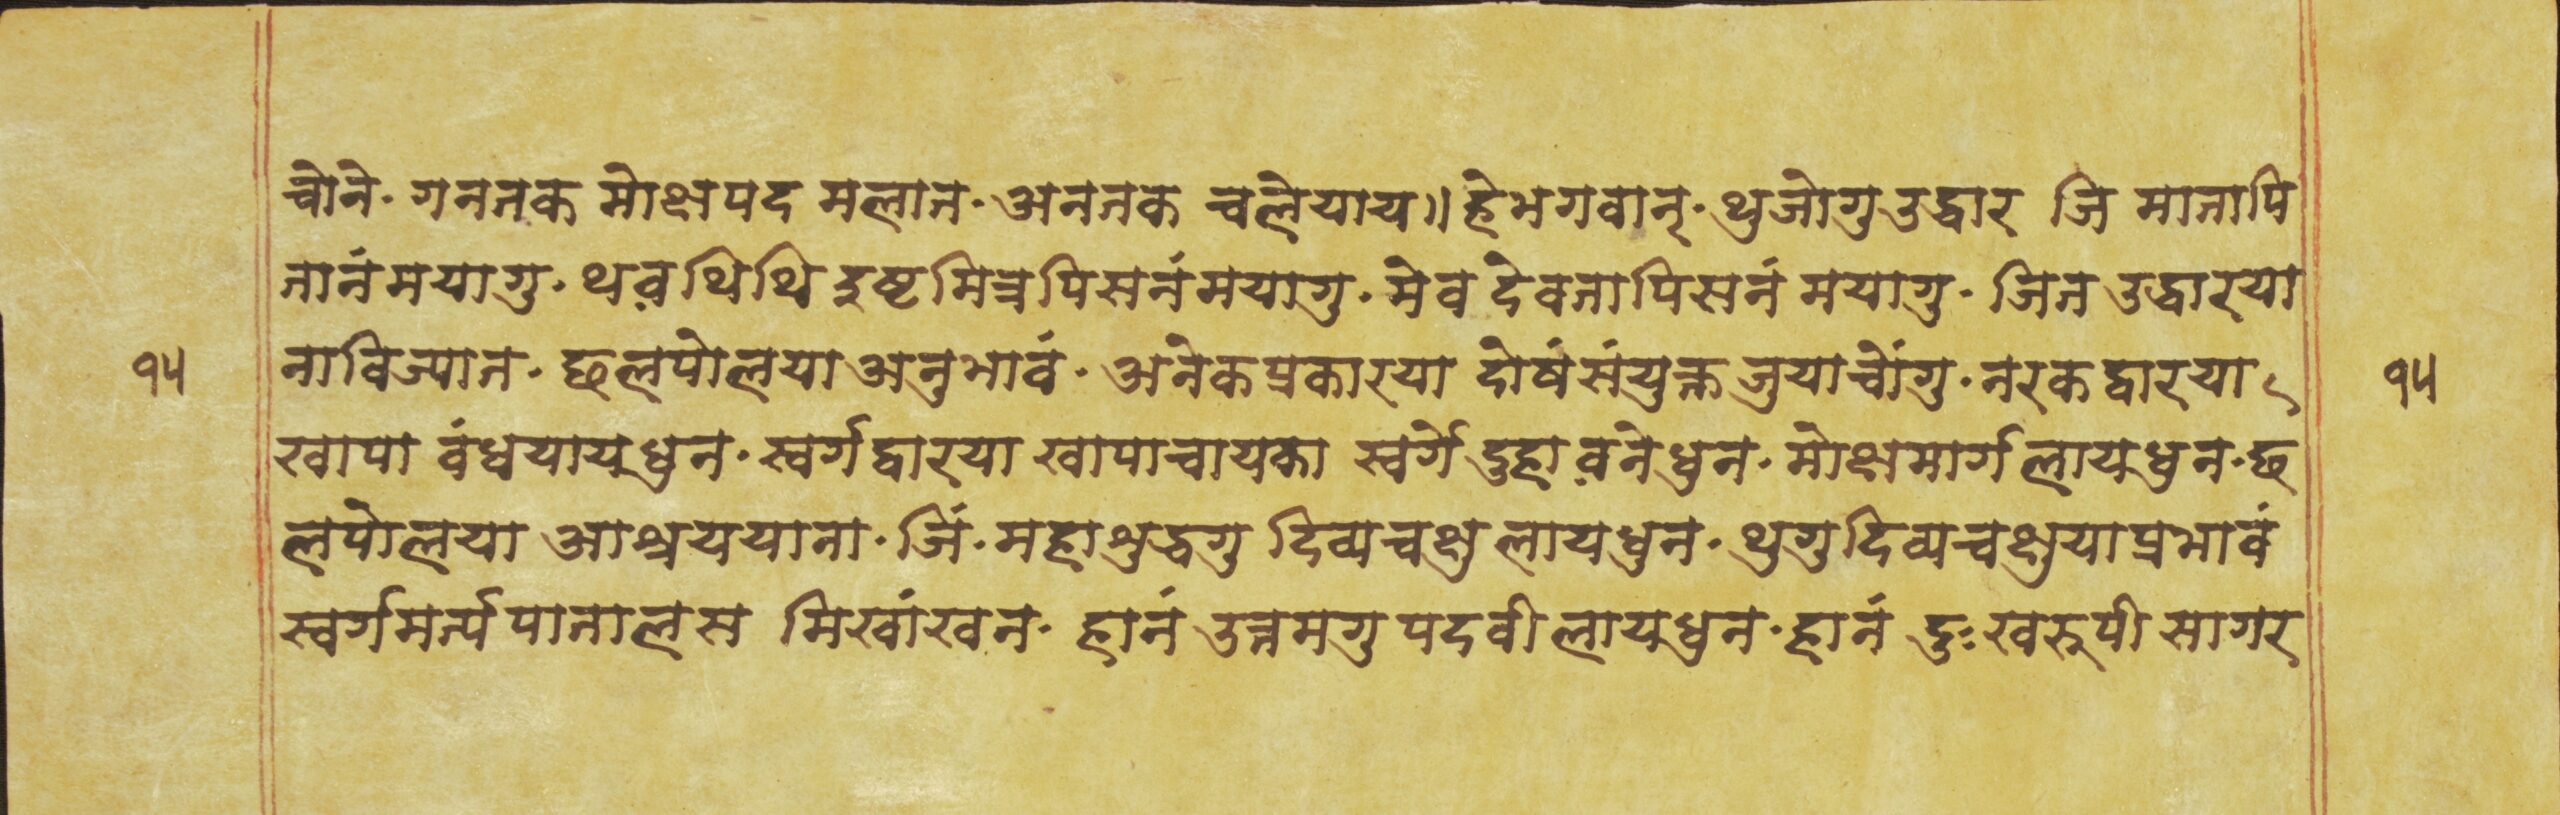 च्वोने· गनतक मोक्षपद मलात· अनतक च्वलेयाय॥ हेभगवान्· थुजोगु उद्धार जि मातापि
तानंमयागु· थव़थिथि इष्टमित्रपिसनंमयागु· मेव देवतापिसनं मयागु· जित उद्धारया
नाविज्यात· छलपोलया अनुभावं· अनेकप्रकारया दोषंसंयुक्त जुयाच्वोंगु· नरकद्वारया
१५ १५
खापा वंधयायधुन· स्वर्गद्वारया खापाचायका स्वर्गे दुहाव़नेधुन· मोक्षमार्गलायधुन· छ
लपोलया आश्रययाना· जिं· महाशुद्धगु दिव्यचक्षु लायधुन· थुगुदिव्यचक्षुयाप्रभावं
स्वर्गमर्त्यपातालस मिखांखन· हानं उत्तमगु पदवी लायधुन· हानं दुःखरूपी सागर